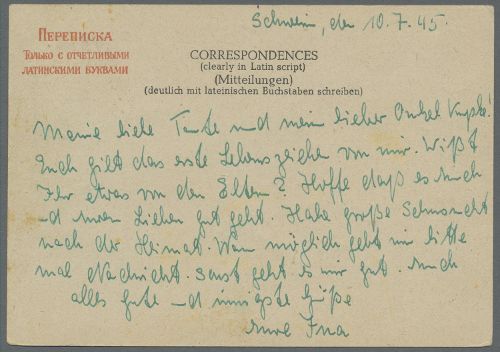 Schwerin, den 10.7.45.
ПЕРЕПИСКА
ТОЛЬКО С ОТЧЕТЛИВЫМИ
ЛАТИНСКИМИ БУКВАМИ
CORRESPONDENCES
(clearly in Latin script)
(Mitteilungen)
(deutlich mit lateinischen Buchstaben schreiben)
Meine liebe Tante und mein lieber Onkel
Euch gilt das erste Lebenszeichen von mir. Wißt
Ihr etwas von den Eltern? Hoffe daß es Euch
und Euren Lieben gut geht. Habe große Sehnsucht
nach der Heimat. Wenn möglich gebt mir bitte
mal Nachricht. Sonst geht es mir gut. Euch
alles gute und innigste Grüße
Eure